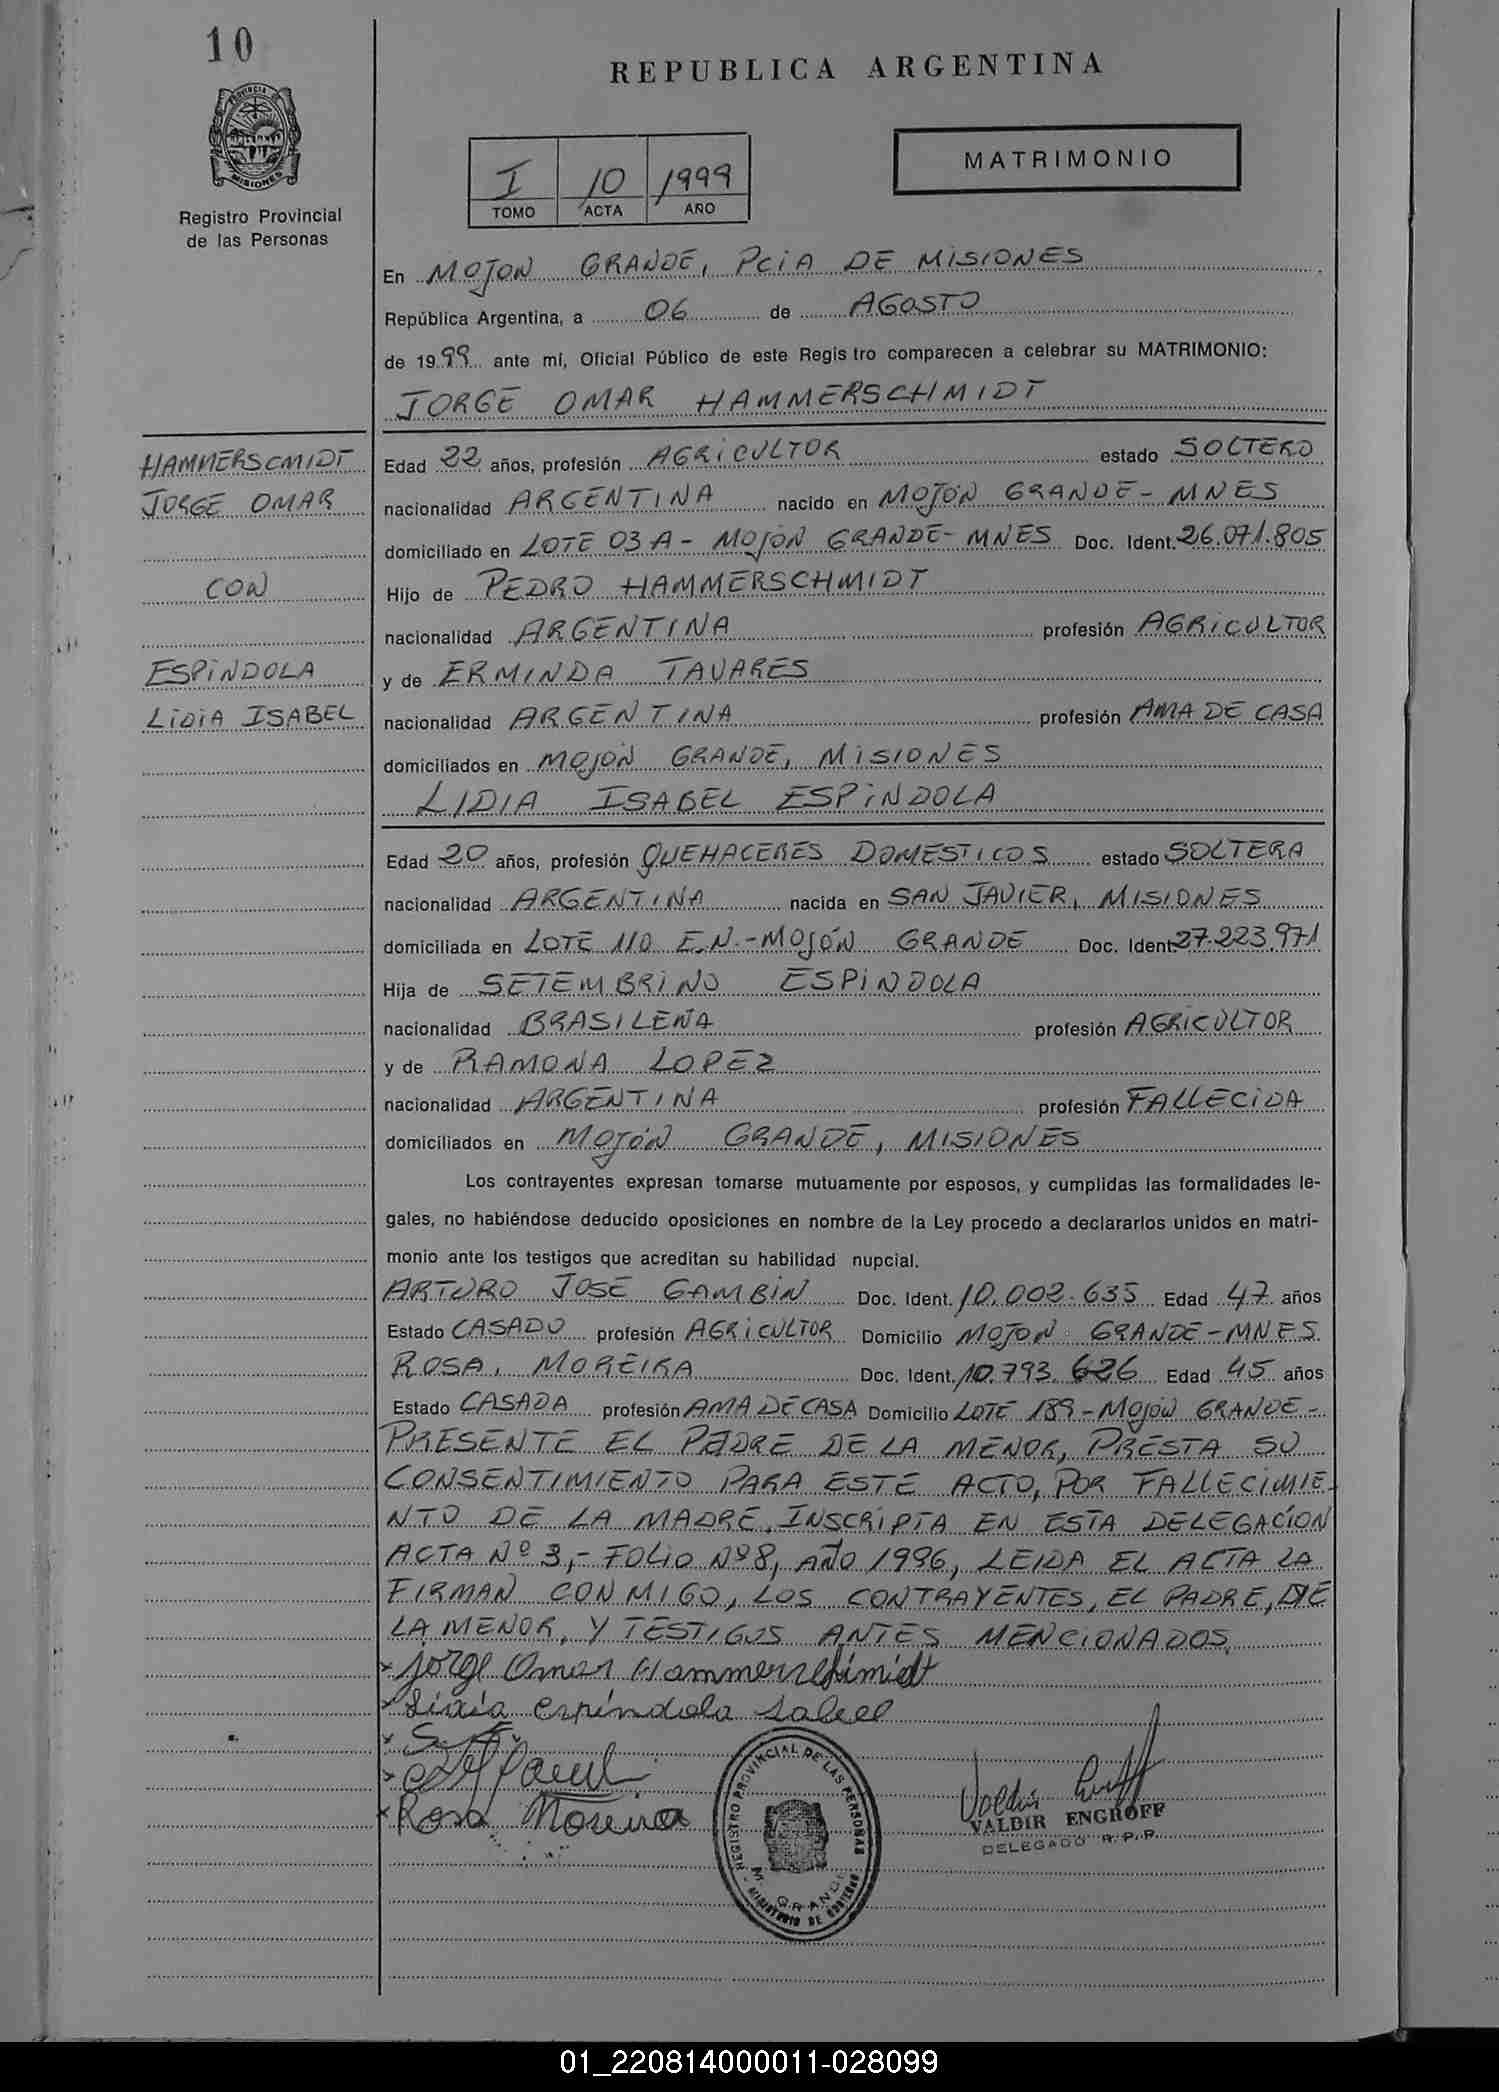 10
REPUBLICA ARGENTINA
PROVINCIA DE MISIONES
Registro Provincial
de las Personas
I 10 1999
TOMO ACTA AÑO
MATRIMONIO
En MOJON GRANDE, PCIA DE MISIONES
República Argentina, a 06 de AGOSTO
de 1999 ante mí, Oficial Público de este Registro comparecen a celebrar su MATRIMONIO:
JORGE OMAR HAMMERSCHMIDT
HAMMERSCMIDT
JORGE OMAR
CON
ESPINDOLA
LIDIA ISABEL
Edad 22 años, profesión AGRICULTOR estado SOLTERO
nacionalidad ARGENTINA nacido en MOJÓN GRANDE - MNES
domiciliado en LOTE 03 A - MOJÓN GRANDE - MNES Doc. Ident. 26.071.805
Hijo de PEDRO HAMMERSCHMIDT
nacionalidad ARGENTINA profesión AGRICULTOR
y de ERMINDA TAVARES
nacionalidad ARGENTINA profesión AMA DE CASA
domiciliados en MOJÓN GRANDE, MISIONES
LIDIA ISABEL ESPINDOLA
Edad 20 años, profesión QUEHACERES DOMESTICOS estado SOLTERA
nacionalidad ARGENTINA nacida en SAN JAVIER, MISIONES
domiciliada en LOTE 110 E.N. - MOJÓN GRANDE Doc. Ident 27.223.971
Hija de SETEMBRINO ESPINDOLA
nacionalidad BRASILEÑA profesión AGRICULTOR
y de RAMONA LOPEZ
nacionalidad ARGENTINA profesión FALLECIDA
domiciliados en MOJÓN GRANDE, MISIONES
Los contrayentes expresan tomarse mutuamente por esposos, y cumplidas las formalidades le-
gales, no habiéndose deducido oposiciones en nombre de la Ley procedo a declararlos unidos en matri-
monio ante los testigos que acreditan su habilidad nupcial.
ARTURO JOSÉ GAMBIN Doc. Ident. 10.002.635 Edad 47 años
Estado CASADO profesión AGRICULTOR Domicilio MOJON GRANDE - MNES
ROSA, MOREIRA Doc. Ident. 10.793.626 Edad 45 años
Estado CASADA profesión AMA DE CASA Domicilio LOTE 189 - MOJÓN GRANDE -
PRESENTE EL PADRE DE LA MENOR, PRESTA SU
CONSENTIMIENTO PARA ESTE ACTO, POR FALLECIMIE-
NTO DE LA MADRE, INSCRIPTA EN ESTA DELEGACIÓN
ACTA Nº 3,- FOLIO Nº 8, AÑO 1996, LEIDA EL ACTA LA
FIRMAN CONMIGO, LOS CONTRAYENTES, EL PADRE, DE
LA MENOR, Y TESTIGOS ANTES MENCIONADOS.
x Jorge Omar Hammerschimidt
x Lidia Espíndola Isabel
x
x
x Rosa Moreira
REGISTRO PROVINCIAL DE LAS PERSONAS
M. GRANDE
MINISTERIO DE GOBIERNO
VALDIR ENGROFF
DELEGADO R.P.P.
01_220814000011-028099